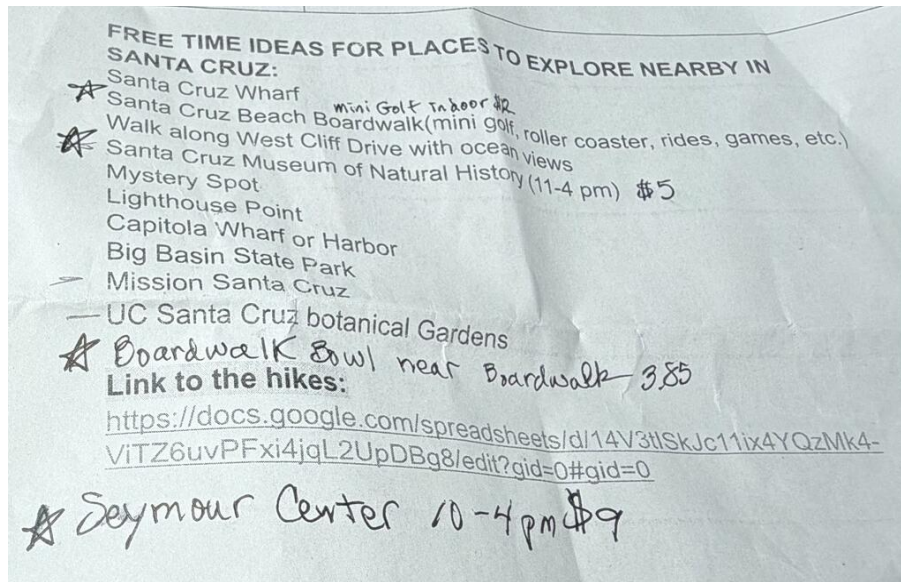 FREE TIME IDEAS FOR PLACES TO EXPLORE NEARBY IN
SANTA CRUZ:
Santa Cruz Wharf
mini Golf Indoor
Santa Cruz Beach Boardwalk(mini golf, roller coaster, rides, games, etc.)
Walk along West Cliff Drive with ocean views
Santa Cruz Museum of Natural History (11-4 pm) $5
Mystery Spot
Lighthouse Point
Capitola Wharf or Harbor
Big Basin State Park
Mission Santa Cruz
UC Santa Cruz botanical Gardens
Boardwalk Bowl near Boardwalk 3.85
Link to the hikes:
https://docs.google.com/spreadsheets/d/14V3tlSkJc11ix4YQzMk4-
ViTZ6uvPFxi4jqL2UpDBg8/edit?gid=0#gid=0
Seymour Center 10-4pm $9